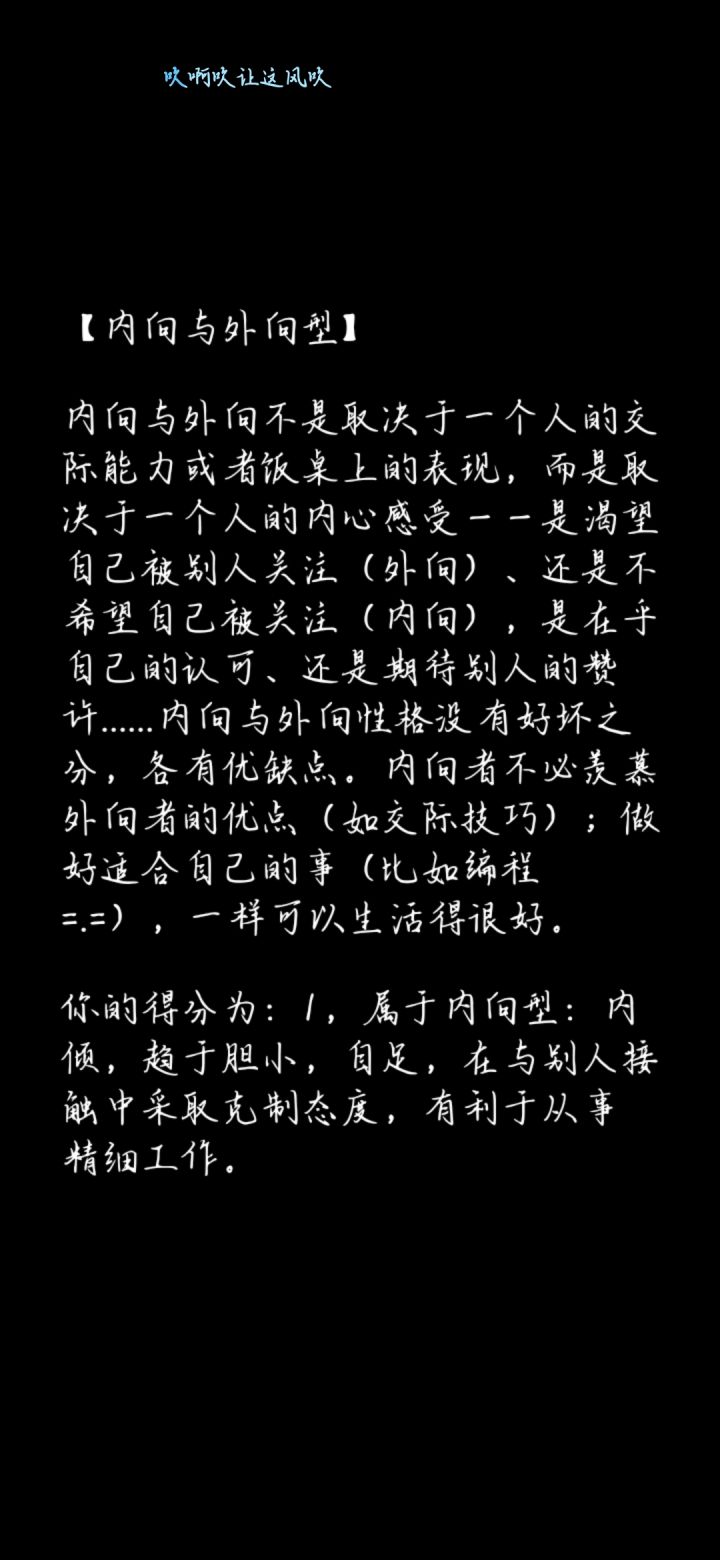 吹啊吹让这风吹
【内向与外向型】
内向与外向不是取决于一个人的交
际能力或者饭桌上的表现，而是取
决于一个人的内心感受－－是渴望
自己被别人关注（外向）、还是不
希望自己被关注（内向），是在乎
自己的认可、还是期待别人的赞
许......内向与外向性格没有好坏之
分，各有优缺点。内向者不必羡慕
外向者的优点（如交际技巧）；做
好适合自己的事（比如编程
=.=），一样可以生活得很好。
你的得分为：1，属于内向型：内
倾，趋于胆小，自足，在与别人接
触中采取克制态度，有利于从事
精细工作。